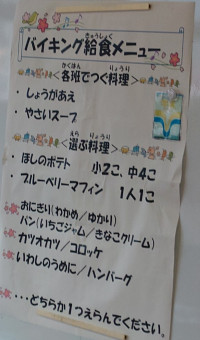 バイキング給食メニュー
きゅうしょく
<各班でつぐ料理>
かくはん りょうり
・しょうがあえ
・やさいスープ
<選ぶ料理>
えら りょうり
・ほしのポテト 小2こ、中4こ
・ブルーベリーマフィン 1人1こ
おにぎり(わかめ/ゆかり)
パン(いちごジャム/きなこクリーム)
カツオカツ/コロッケ
いわしのうめに/ハンバーグ
・・・どちらか1つえらんでください。